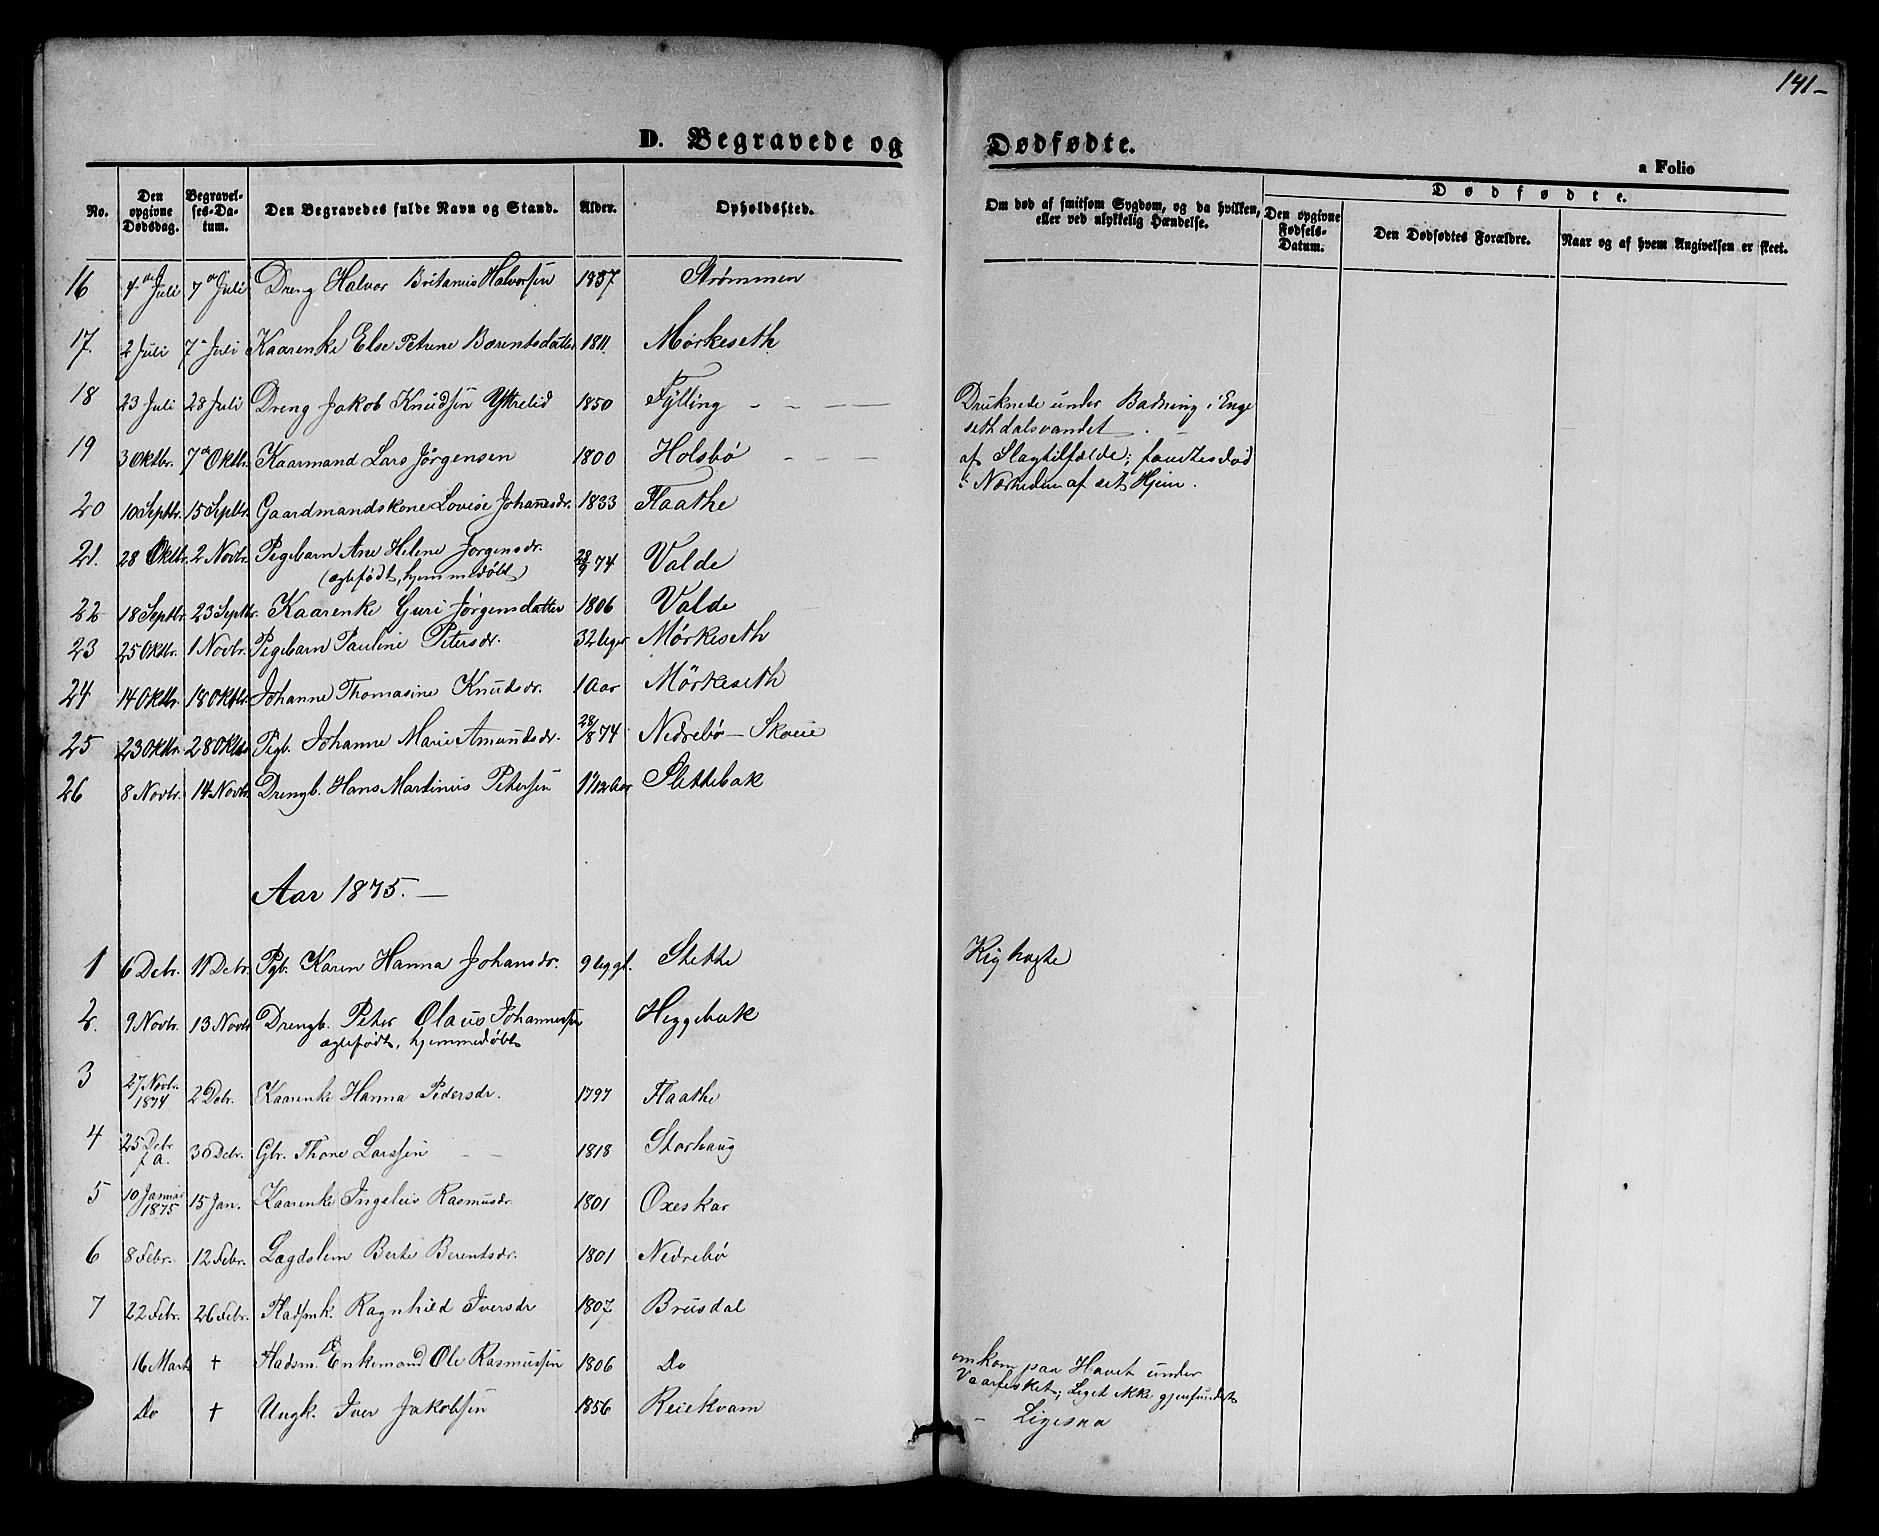 141-
D. Begravede og Dødfødte.
a Folio
No. Den opgivne Dødsdag. Begravelses-Datum. Den Begravedes fulde Navn og Stand. Alder. Opholdssted. Om død af smitsom Sygdom, og da hvilken, eller ved ulykkelig Hændelse. Dødfødte. Den opgivne Fødsels-Datum. Den Dødfødtes Forældre. Naar og af hvem Angivelsen er skeet.
16 4de Juli 7de Juli Dreng Halvor Britanius Halvorsen Strømmen
17. 2 Juli 7de Juli Kaarenke Else Petrine Berentsdatter 1811. Mørkeseth
18 23 Juli 28 Juli Dreng Jakob Knudsen Yttrelid 1850 Fylling - - - - Druknede under Badning i Enge
sethdalsvandet.
19 3 Oktbr. 7de Oktbr. Kaarmand Lars Jörgensen 1800 Holsbø - - - af Slagtilfælde; fandtes död
i Nærheden af sit Hjem.
20 10 Septbr. 15 Septbr. Gaardmandskone Lovise Johannesdr. 1833 Flaathe
21. 28 Oktbr. 2 Novbr. Pigebarn Ane Helene Jørgensdr. 28/9 74 Valde
(ægtefødt, hjemmedøbt)
22 18 Septbr. 23 Septbr. Kaarenke Guri Jørgensdatter 1806 Valde
23 25 Oktbr. 1 Novbr. Pigebarn Pauline Petersdr. 32 Uger Mørkeseth
24 14 Oktbr. 18 Oktbr. Johanne Thomasine Knudsdr. 1 Aar Mörkeseth
25 23 Oktbr. 28 Oktbr. Pigb. Johanne Marie Amundsdr. 28/8 74 Nedrebø - Skoue
26 8 Novbr. 14 Novbr. Drengb. Hans Martinus Petersen 1 1/12 Aar Slettebak
Aar 1875. -
1 6 Debr. 11 Debr. Pgb. Karen Hanna Johansdr. 9 Uggl. Stette Kighoste
2. 9 Novbr. 13 Novbr. Drengb. Peter Olaus Johannessen Heggebak
ægtefødt, hjemmedøbt
3 27 Novbr. 1874 2 Debr. Kaarenke Hanna Pedersdr. 1797 Flaathe
4 25 Debr. f. A. 30 Debr. Gbr. Thore Larssen - - 1818 Storhaug
5 10 Januar 1875 15 Jan. Kaarenke Ingeleiv Rasmusdr. 1801 Oxeskar
6 8 Febr. 12 Febr. Lægdslem Berte Berentsdr. 1801 Nedrebø
7 22 Febr. 26 Febr. Pladsmk. Ragnhild Iversdr 1807 Brusdal
16 Marts † Pladsm. & Enkemand Ole Rasmussen 1806 Do omkom paa Havet under
Vaarfisket; Liget ikke gjenfundet
Do † Ungk. Iver Jakobsen 1856 Reiekvam - Ligesaa